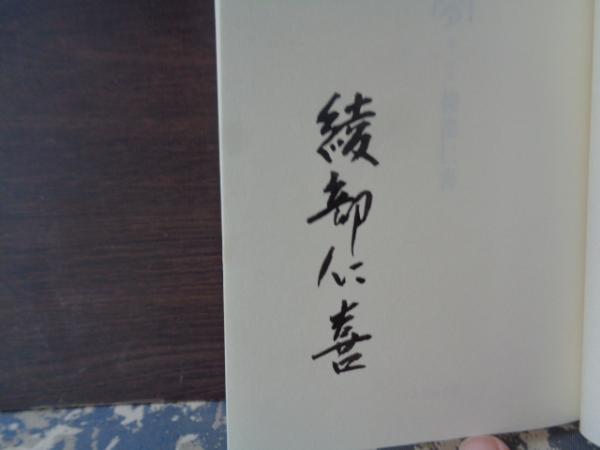 綾部仁喜